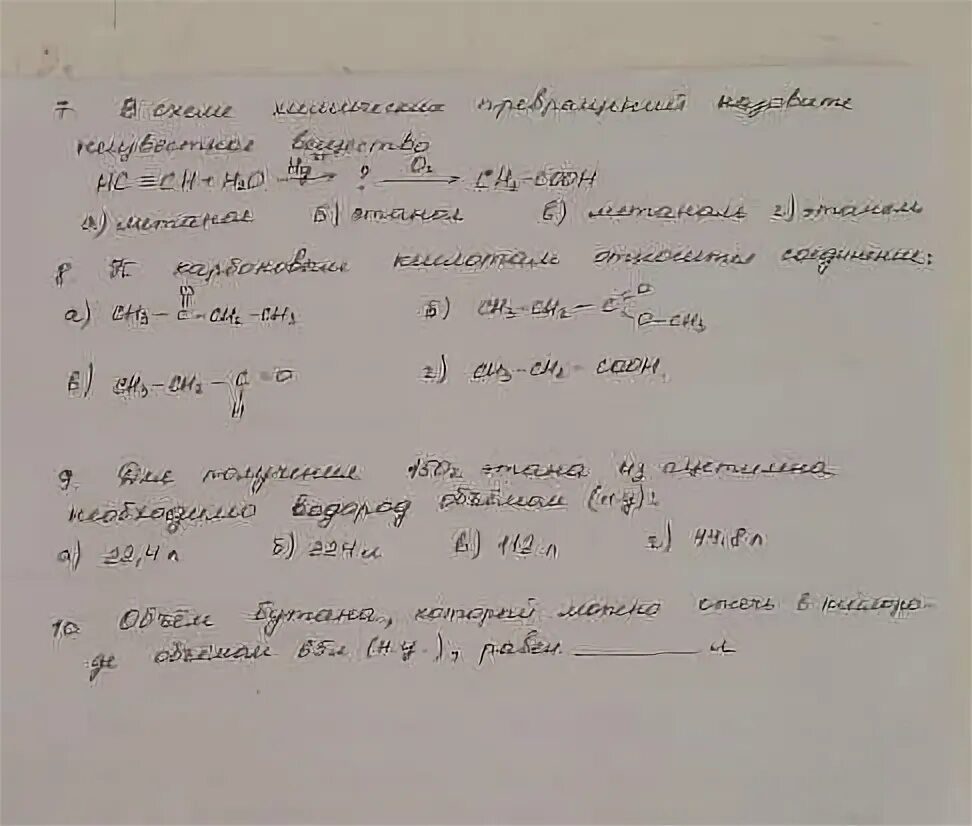 7. В схеме химических превращений назовите
неизвестное вещество
HC≡CH + H₂O Hg²⁺→ ? O₂→ CH₃-COOH
а) метанол б) этанол в) метаналь г) этаналь
8 К карбоновым кислотам относится соединение:
а) CH₃ - C - CH₂ - CH₃ б) CH₃-CH₂ - C O O-CH₃
в) CH₃-CH₂ - C = O H г) CH₃-CH₂ - COOH
9. Для получения 150г этана из ацетилена
необходимо водород объёмом (н.у):
а) 22,4 л б) 224 л в) 112 л г) 44,8 л
10 Объём бутана, который можно сжечь в кислоро-
де объёмом 65л (н.у.), равен ______ л